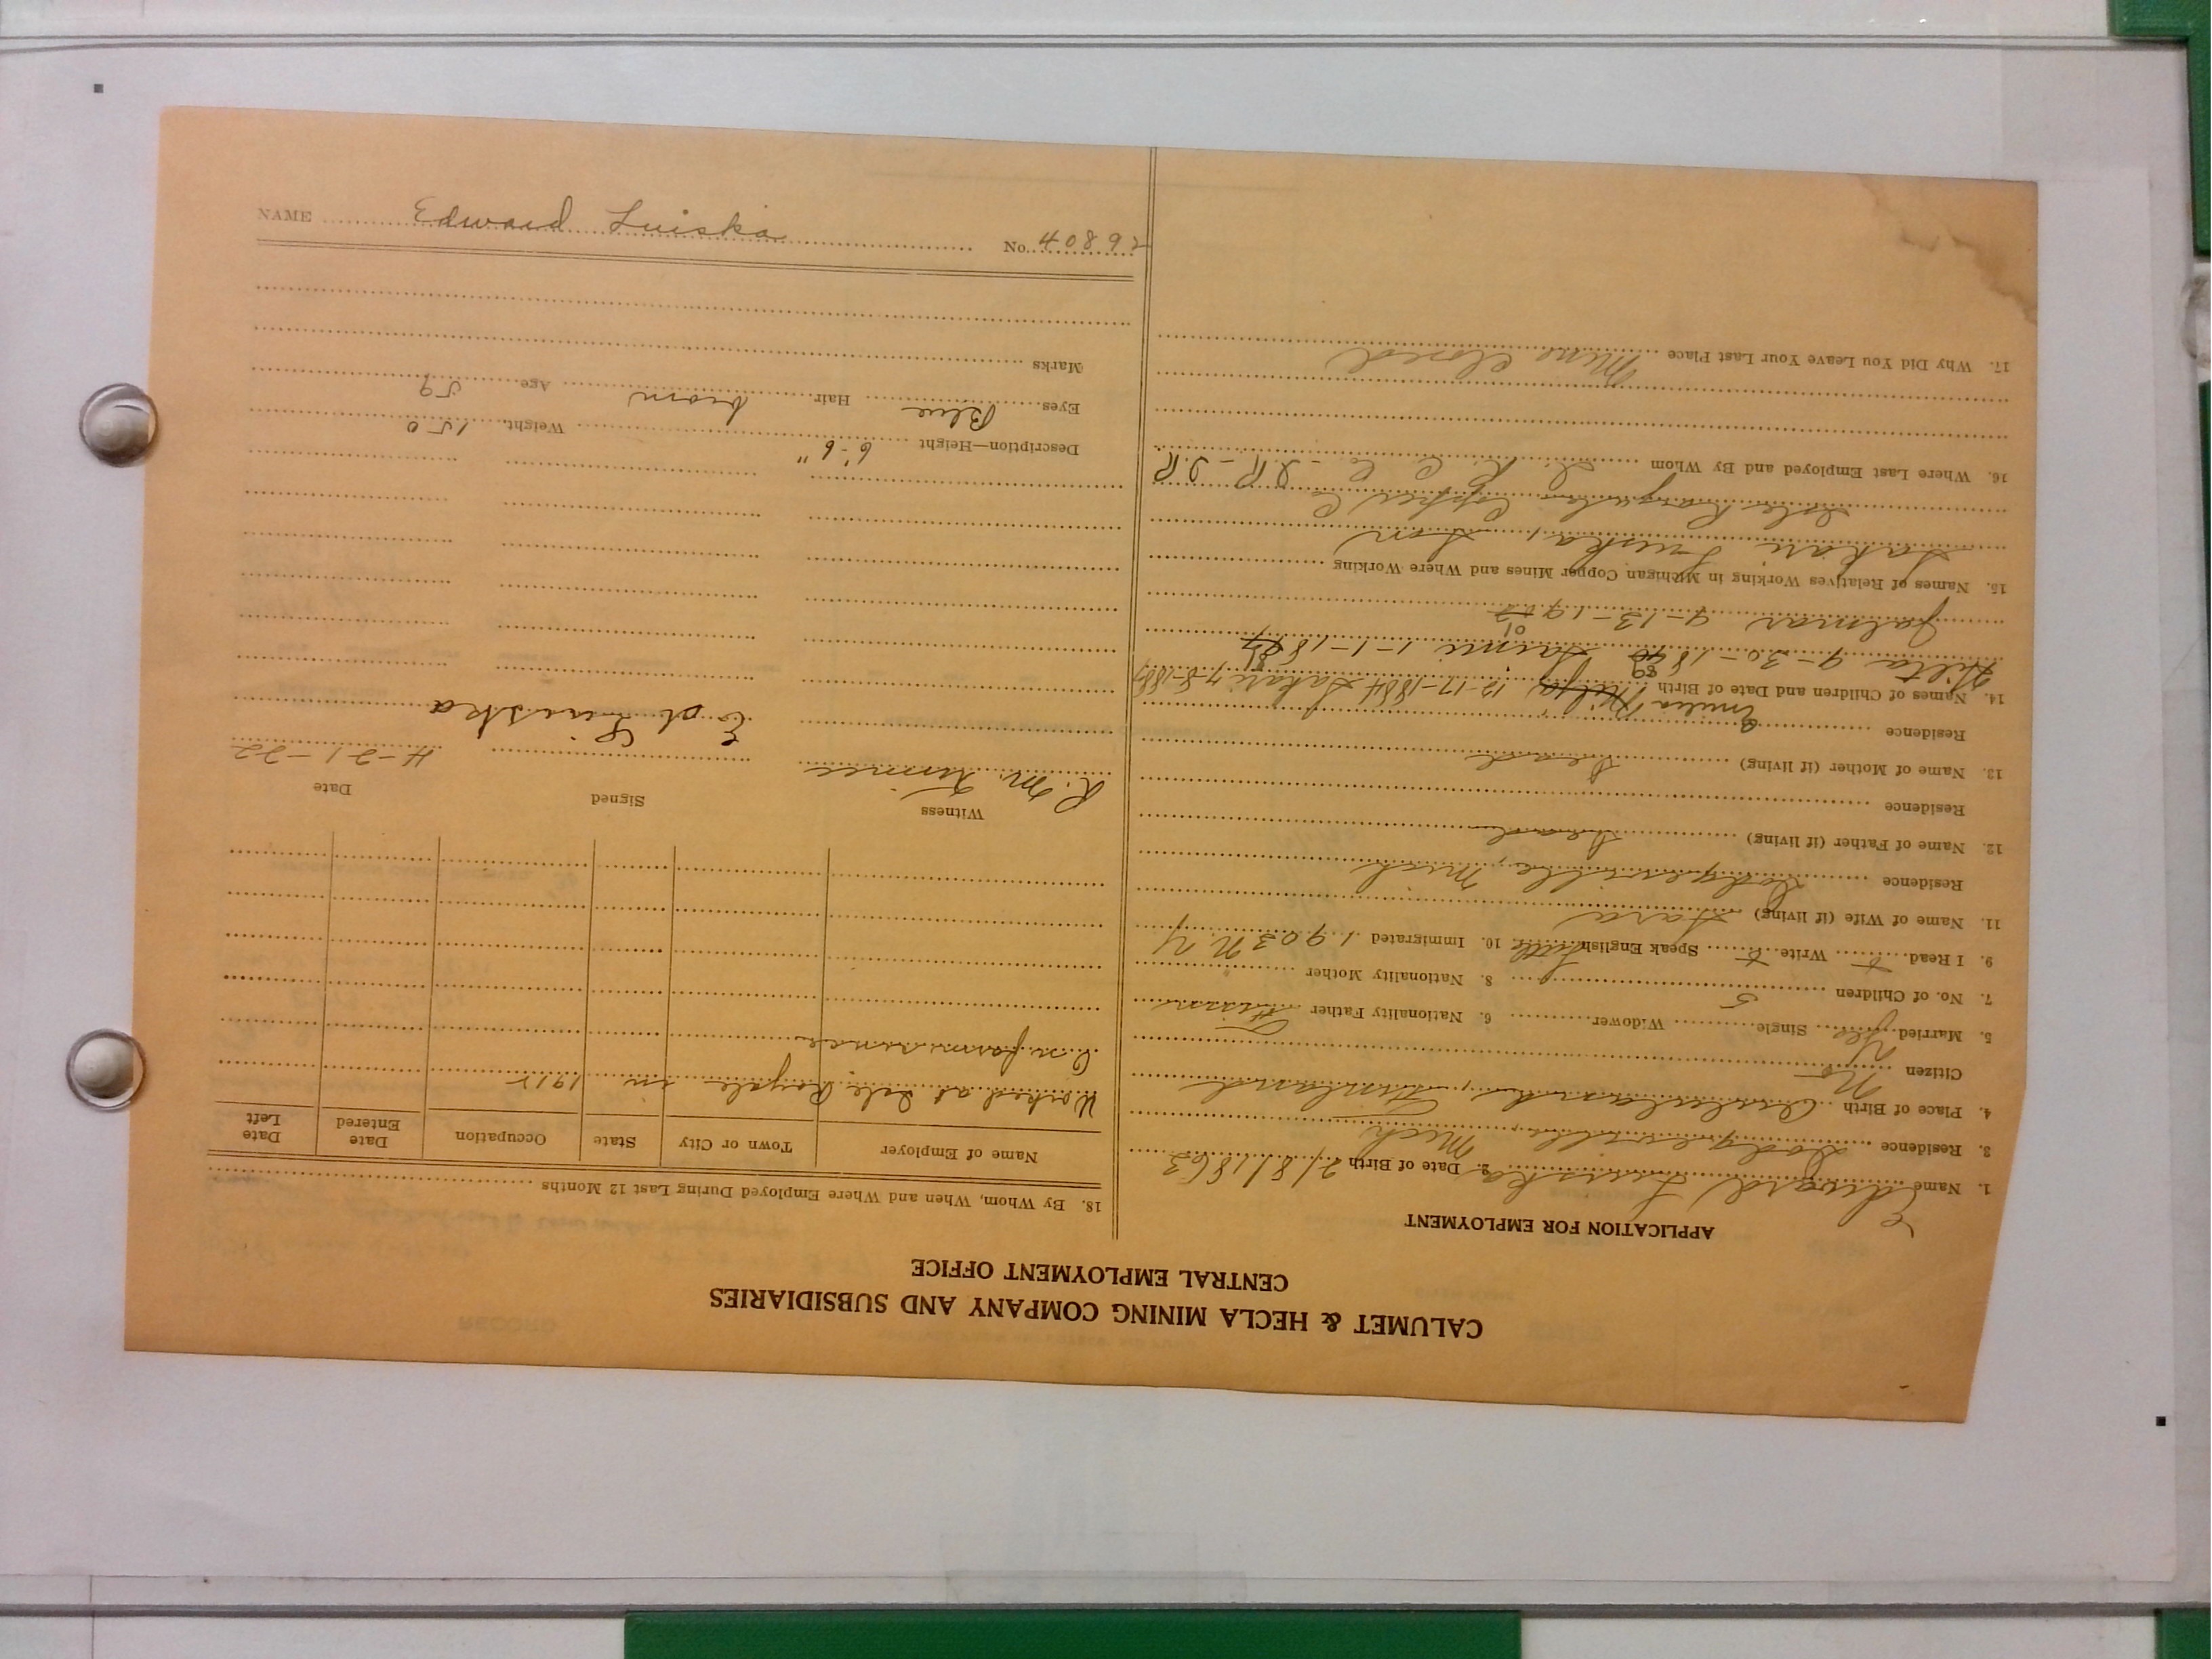 CALUMET & HECLA MINING COMPANY AND SUBSIDIARIES
CENTRAL EMPLOYMENT OFFICE
APPLICATION FOR EMPLOYMENT
1. Name Edward Luiska 2. Date of Birth 2/8/1863
3. Residence Dodgeville, Mich
4. Place of Birth Finland
Citizen No
5. Married Yes Single Widower 6. Nationality Father Finn
7. No. of Children 5 8. Nationality Mother
9. I Read F Write F Speak English Little 10. Immigrated 1903 N.Y
11. Name of Wife (if living) Sara
Residence Dodgeville, Mich
12. Name of Father (if living) Dead
Residence
13. Name of Mother (if living) Dead
Residence
Emilia
14. Names of Children and Date of Birth Hilja 12-17-1884 Sakari 7-8-1887
Hilta 9-30-1889 Saimi 1-1-18
Jalmar 9-13-1901
15. Names of Relatives Working in Michigan Copper Mines and Where Working
Sakari Luiska, Son
Isle Royale Copper Co
16. Where Last Employed and By Whom I. R. C. Co - I.R - I.R
17. Why Did You Leave Your Last Place Mine Closed
18. By Whom, When and Where Employed During Last 12 Months
Name of Employer Town or City State Occupation Date Entered Date Left
Worked at Isle Royale in 1915
On farm since
Witness Signed Date
R. M. Ed Luiska 4-21-22
Description—Height 6-6" Weight 150
Eyes Blue Hair brown Age 59
Marks
NAME Edward Luiska No. 40892